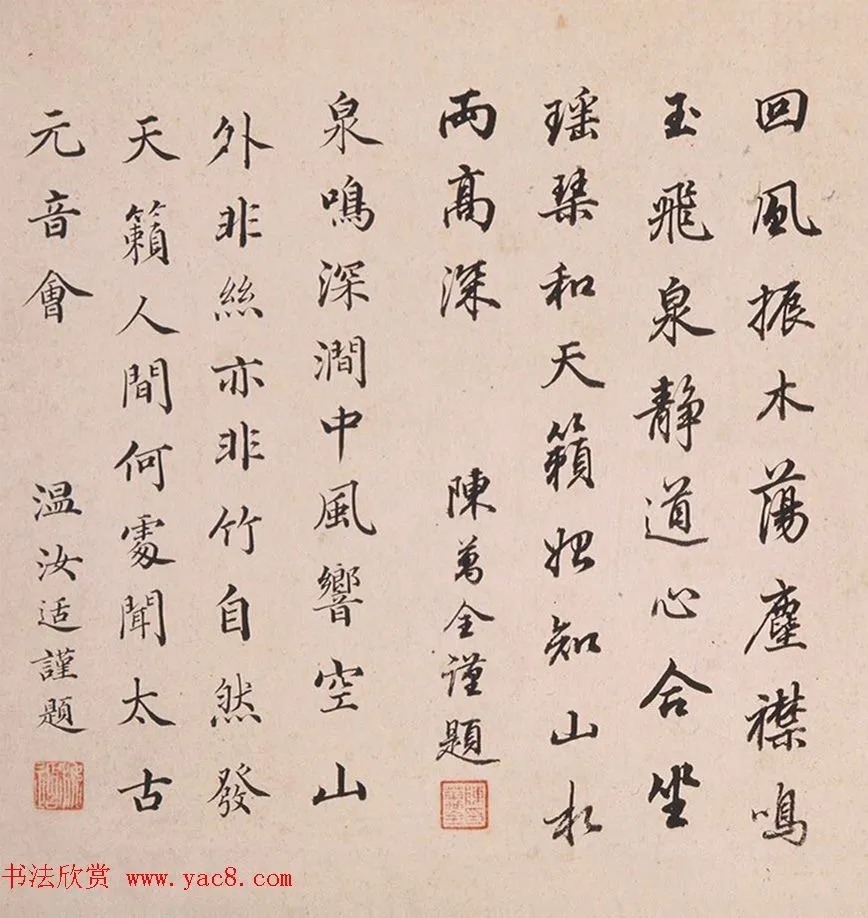 回風振木蕩塵襟鳴
玉飛泉静道心合坐
瑶琴和天籟始知山水
兩高深 陳萬全謹題
泉鳴深澗中風響空山
外非絲亦非竹自然發
天籟人間何處聞太古
元音會 温汝适謹題
书法欣赏 www.yac8.com